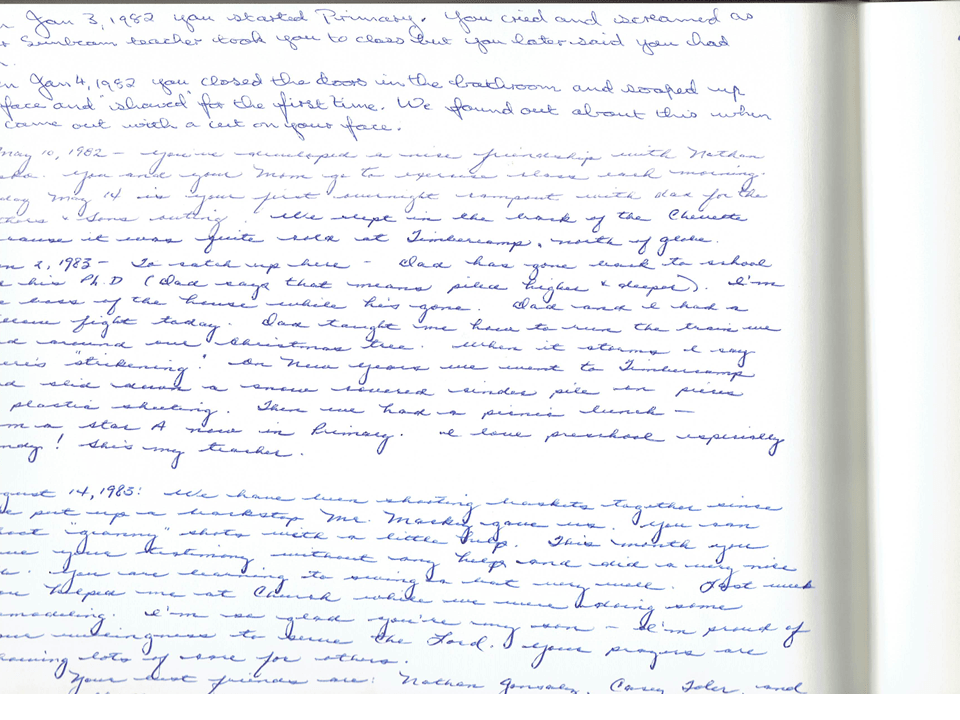 n Jan 3, 1982 you started Primary. You cried and screamed as
r Sunbeam teacher took you to class but you later said you had
n Jan 4, 1982 you closed the doors in the bathroom and soaped up
face and "shaved" for the first time. We found out about this when
came out with a cut on your face.
May 10, 1982 - You've developed a nice friendship with Nathan
You and your Mom go to exercise class each morning.
day May 14 is your first overnight campout with dad for the
thers & Sons outing. We slept in the back of the Chevette
cause it was quite cold at Timbercamp, north of globe.
n 2, 1983 - To catch up here - Dad has gone back to school
his Ph.D (Dad says that means piled higher & deeper). I'm
e boss of the house while he's gone. Dad and I had a
fight today. Dad taught me how to run the train we
d around our Christmas tree. When it storms I say
ere's "strikening." On New Years we went to Timbercamp
d slid down a snow covered cinder pile on pieces
plastic sheeting. Then we had a picnic lunch -
m a star A now in Primary. I love preschool especially
ndy! She's my teacher.
gust 14, 1983: We have been shooting baskets together since
e put up a backstop Mr. Mackey gave us. You can
oot "granny" shots with a little help. This month you
ve your testimony without any help and did a very nice
You are learning to swing a bat very well. Last week
ou helped me at Church while we were doing some
modeling. I'm so glad you're my son - I'm proud of
our willingness to serve the Lord. Your prayers are
howing lots of care for others.
Your best friends are: Nathan Gonzales, Casey Toler, and